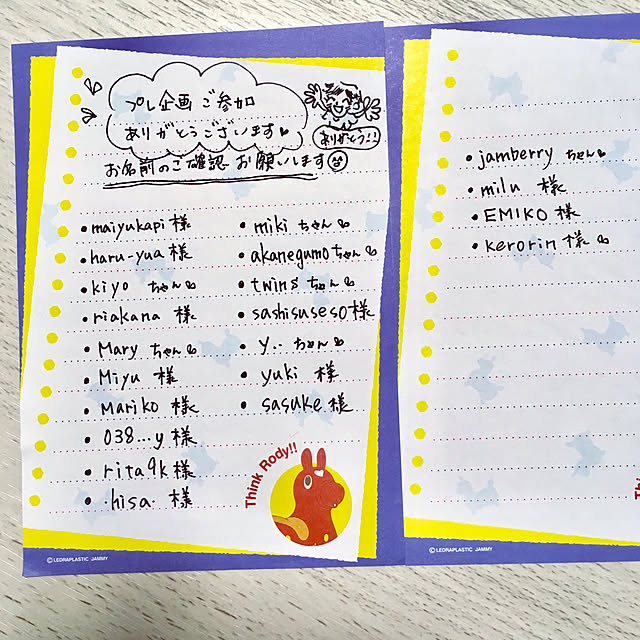 プレ企画ご参加
ありがとうございます♥
ありがとう!!
お名前のご確認お願いします
•maiyukapi様
•haru-yua様
•kiyo ちゃん
•riakana 様
•Mary ちゃん
•Miyu 様
•Mariko 様
•038...y様
•rita9k様
•.hisa. 様
•miki ちゃん
•akanegumoちゃん
•twins ちゃん
•sashisuseso様
•y.. ちゃん
•yuki 様
•sasuke 様
Think Rody!!
©LEDRAPLASTIC JAMMY
•jamberry ちゃん♥
•milu 様
•EMIKO 様
•kerorin 様
©LEDRAPLASTIC JAMMY